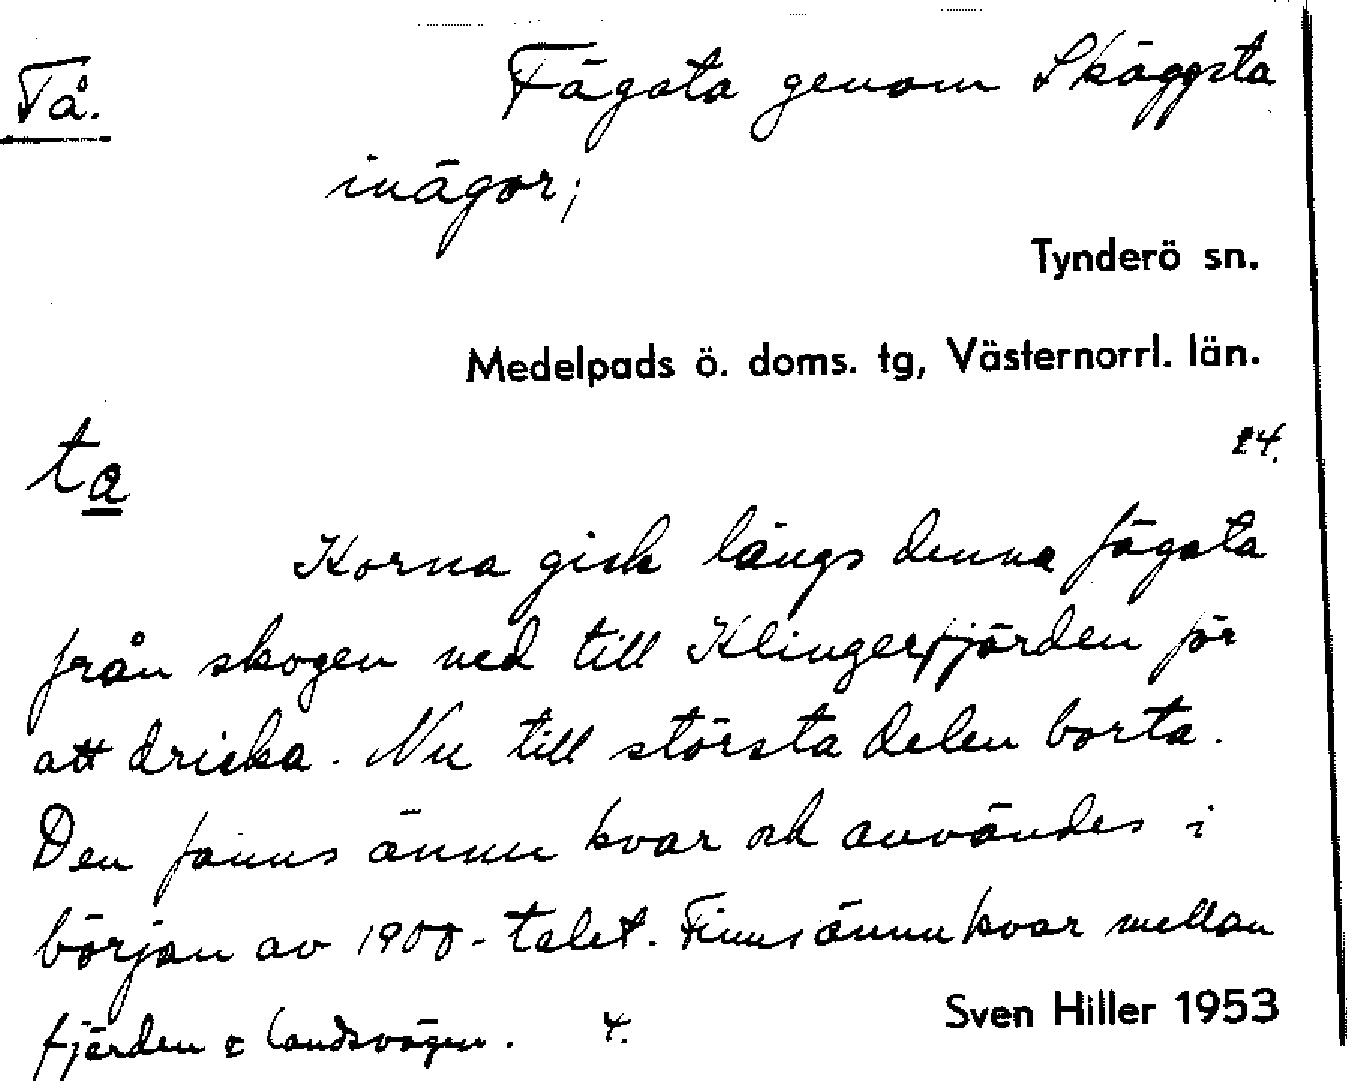 Tå. Fägata genom Skäggsta
inägor;
Tynderö sn.
Medelpads ö. doms. tg, Västernorrl. län.
24.
ta
Korna gick längs denna fägata
från skogen ned till Klingerfjärden för
att dricka. Nu till största delen borta.
Den fanns ännu kvar och användes i
början av 1900-talet. Finns ännu kvar mellan
fjärden & landsvägen. 4.
Sven Hiller 1953